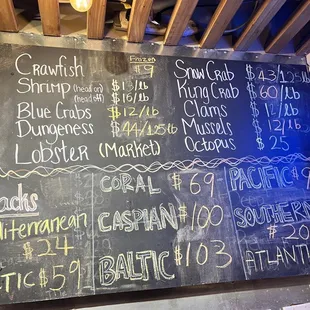 Crawfish Frozen $9
Shrimp (head on) $13/lb
(head off) $16/lb
Blue Crabs $12/lb
Dungeness $44/1.25lb
Lobster (Market)
Snow Crab $43/1.25lb
King Crab $60/lb
Clams $12/lb
Mussels 12/lb
Octopus $25
acks
diterranean
$24
TIC $59
CORAL $69
CASPIAN $100
BALTIC $103
PACIFIC $
SOUTHERN
$20
ATLANTI